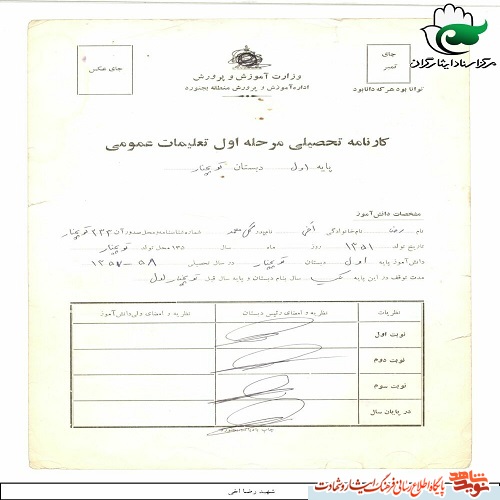 مرکز اسناد ایثارگران
جای تمبر
جای عکس
توانا بود هر که دانا بود
وزارت آموزش و پرورش
اداره آموزش و پرورش منطقه بجنورد
کارنامه تحصیلی مرحله اول تعلیمات عمومی
پایه اول دبستان قوچنار
مشخصات دانش آموز
نام رضا نام خانوادگی اخی نام پدر گل محمد شماره شناسنامه و محل صدور آن ۲۲۳ قوچنار
تاریخ تولد ۱۳۵۱ روز ماه سال ۱۳۵ محل تولد قوچنار
دانش آموز پایه اول دبستان قوچنار در سال تحصیلی ۵۸-۱۳۵۷
مدت توقف در این پایه یک سال بنام دبستان و پایه سال قبل قوچنار اول
نظریات
نظریه و امضای رئیس دبستان
نظریه و امضای ولی دانش آموز
نوبت اول
نوبت دوم
نوبت سوم
در پایان سال
نوید شاهد
پایگاه اطلاع رسانی فرهنگ ایثار و شهادت
شهید رضا اخی